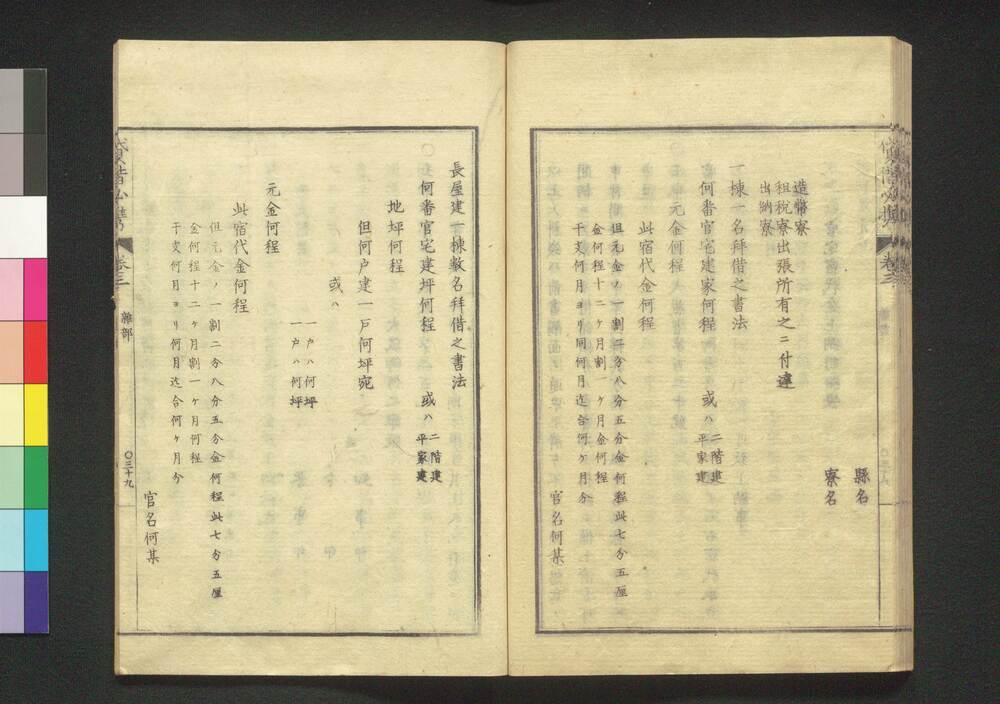 縣名
寮名
造幣寮
租税寮出張所有之ニ付違
出納寮
一棟一名拜借之書法
何番官宅建家何程 或ハ 二階建
平家建
元金何程
此宿代金何程
但元金ノ一割二分八分五分金何程此七分五厘
金何程十二ヶ月割一ヶ月金何程
干支何月ヨリ同何月迄合何ヶ月分
官名何某
長屋建一棟数名拜借之書法
何番官宅建坪何程 或ハ 二階建
平家建
地坪何程
但何戸建一戸何坪宛
或ハ
一戸ハ何坪
一戸ハ何坪
元金何程
此宿代金何程
但元金ノ一割二分八分五分金何程此七分五厘
金何程十二ヶ月割一ヶ月何程
干支何月ヨリ何月迄合何ヶ月分
官名何某
卷三
雜部
〇三十九